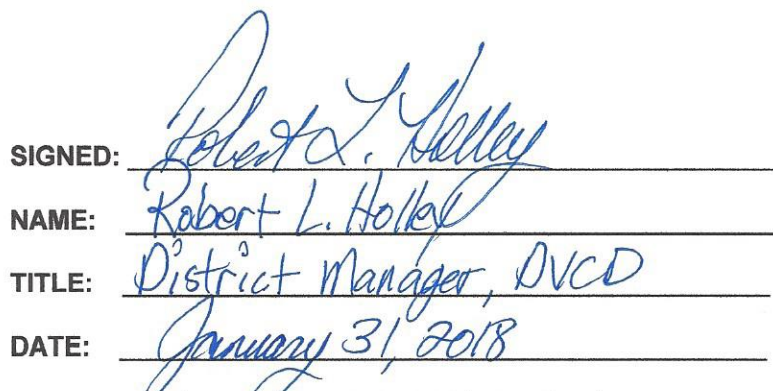 SIGNED: Robert L. Holley
NAME: Robert L. Holley
TITLE: District Manager, DVCD
DATE: January 31, 2018